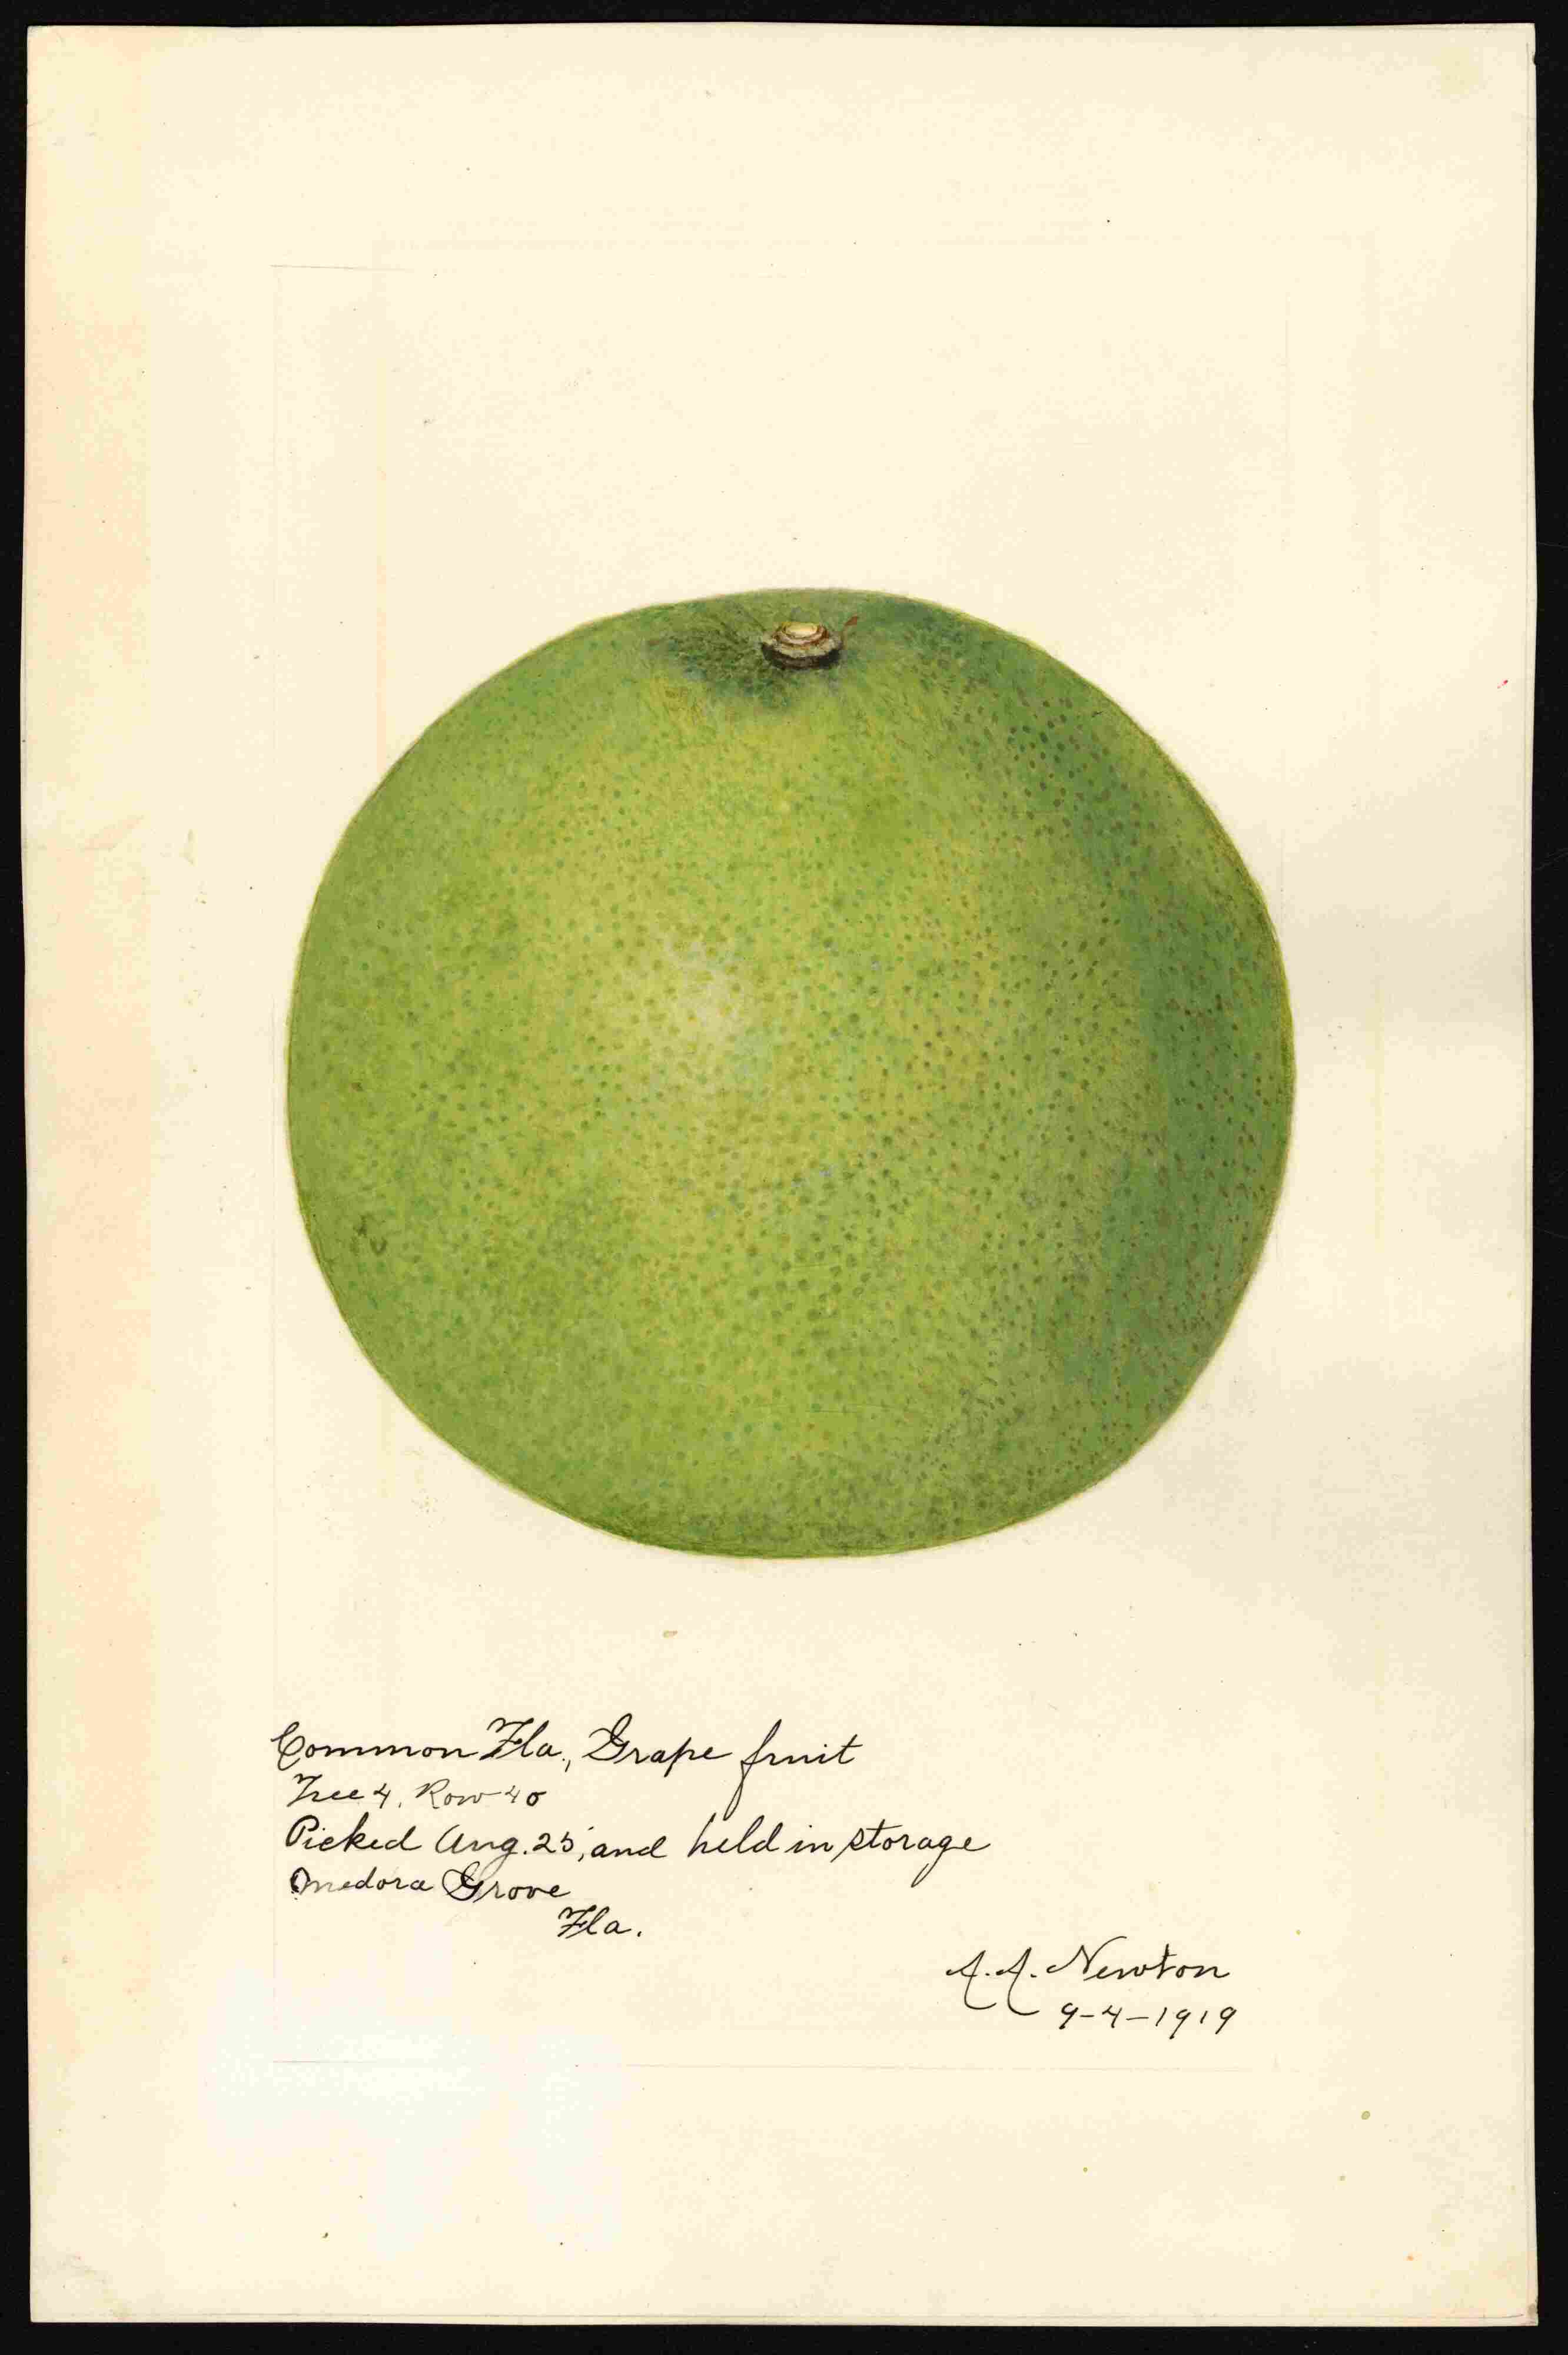 Common Fla., Grape fruit
Tree 4, Row 40
Picked Aug. 25, and held in storage
Omedora Grove
Fla.
A. A. Newton
9-4-1919